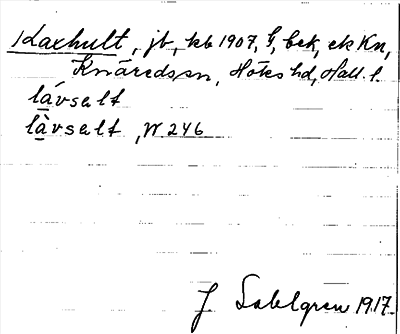 Laxhult, jb, kb 1907, G, bek, ek Kn,
Knäredssn, Höks hd, Hall. l
lávsalt
làvsalt, W 246
J Sahlgren 1917.